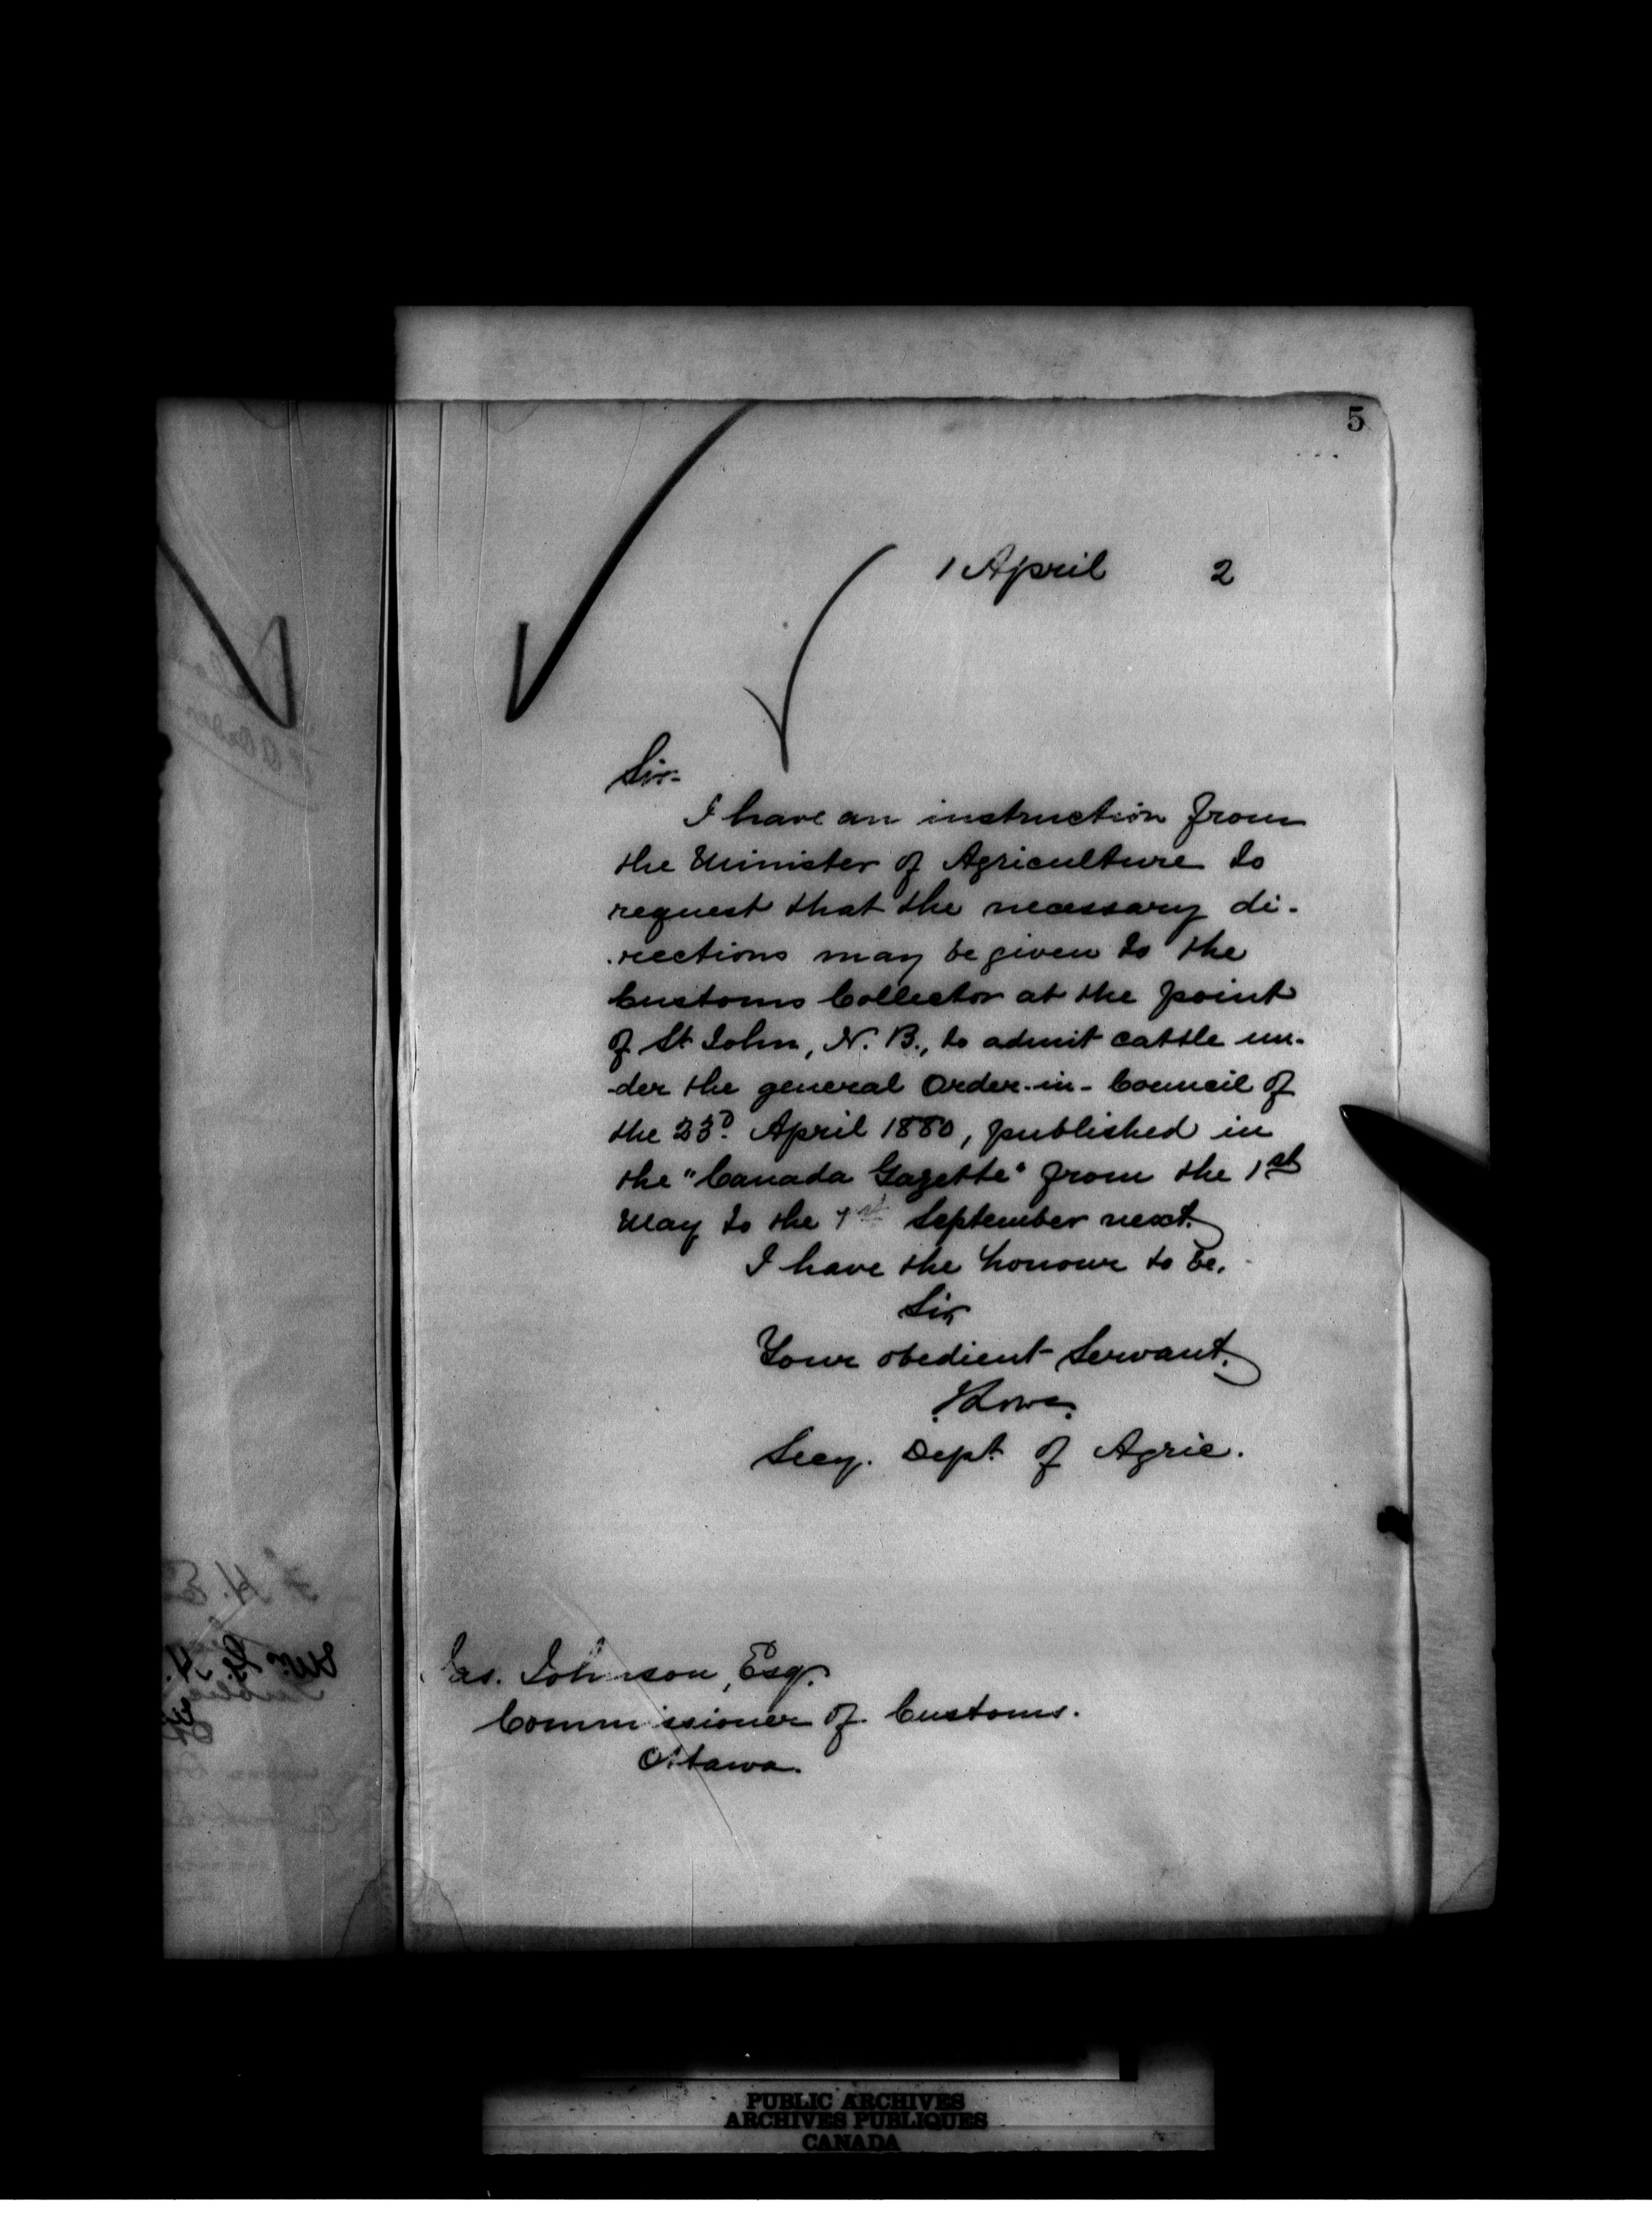 5
1 April 2
Sir.
I have an instruction from
the Minister of Agriculture to
request that the necessary di-
-rections may be given to the
Customs Collector at the point
of St John, N. B., to admit cattle un-
-der the general Order-in-Council of
the 23d. April 1880, published in
the "Canada Gazette" from the 1st
May to the 1st September next.
I have the honour to be,
Sir,
Your obedient Servant,
J Lowe.
Secy. Dept. of Agric.
Jas. Johnson, Esq.
Commissioner of Customs.
Ottawa.
PUBLIC ARCHIVES
ARCHIVES PUBLIQUES
CANADA